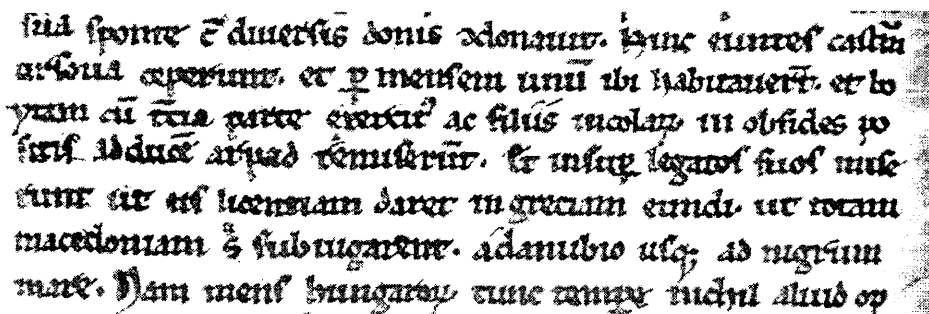 sua sponte c̄ diuersis donis ꝯdonauit. Hinc euntes castrū
ors̄oua ceperunt. et ꝑ mensem unū ibi habitauer̄t. et bo
ytam cū t̄cia parte exercitꝰ ac filiis incolaꝝ in obsides po
sitis ad ducē arpad remiser̄t. Et insuꝑ legatos suos mise
runt ut eis licentiam daret in greciam eundi. ut totam
macedoniam s̄ subiugarent. a danubio usqꝫ ad nigrum
mare. Nam mens hungaroꝝ tunc tempe nichil aliud op